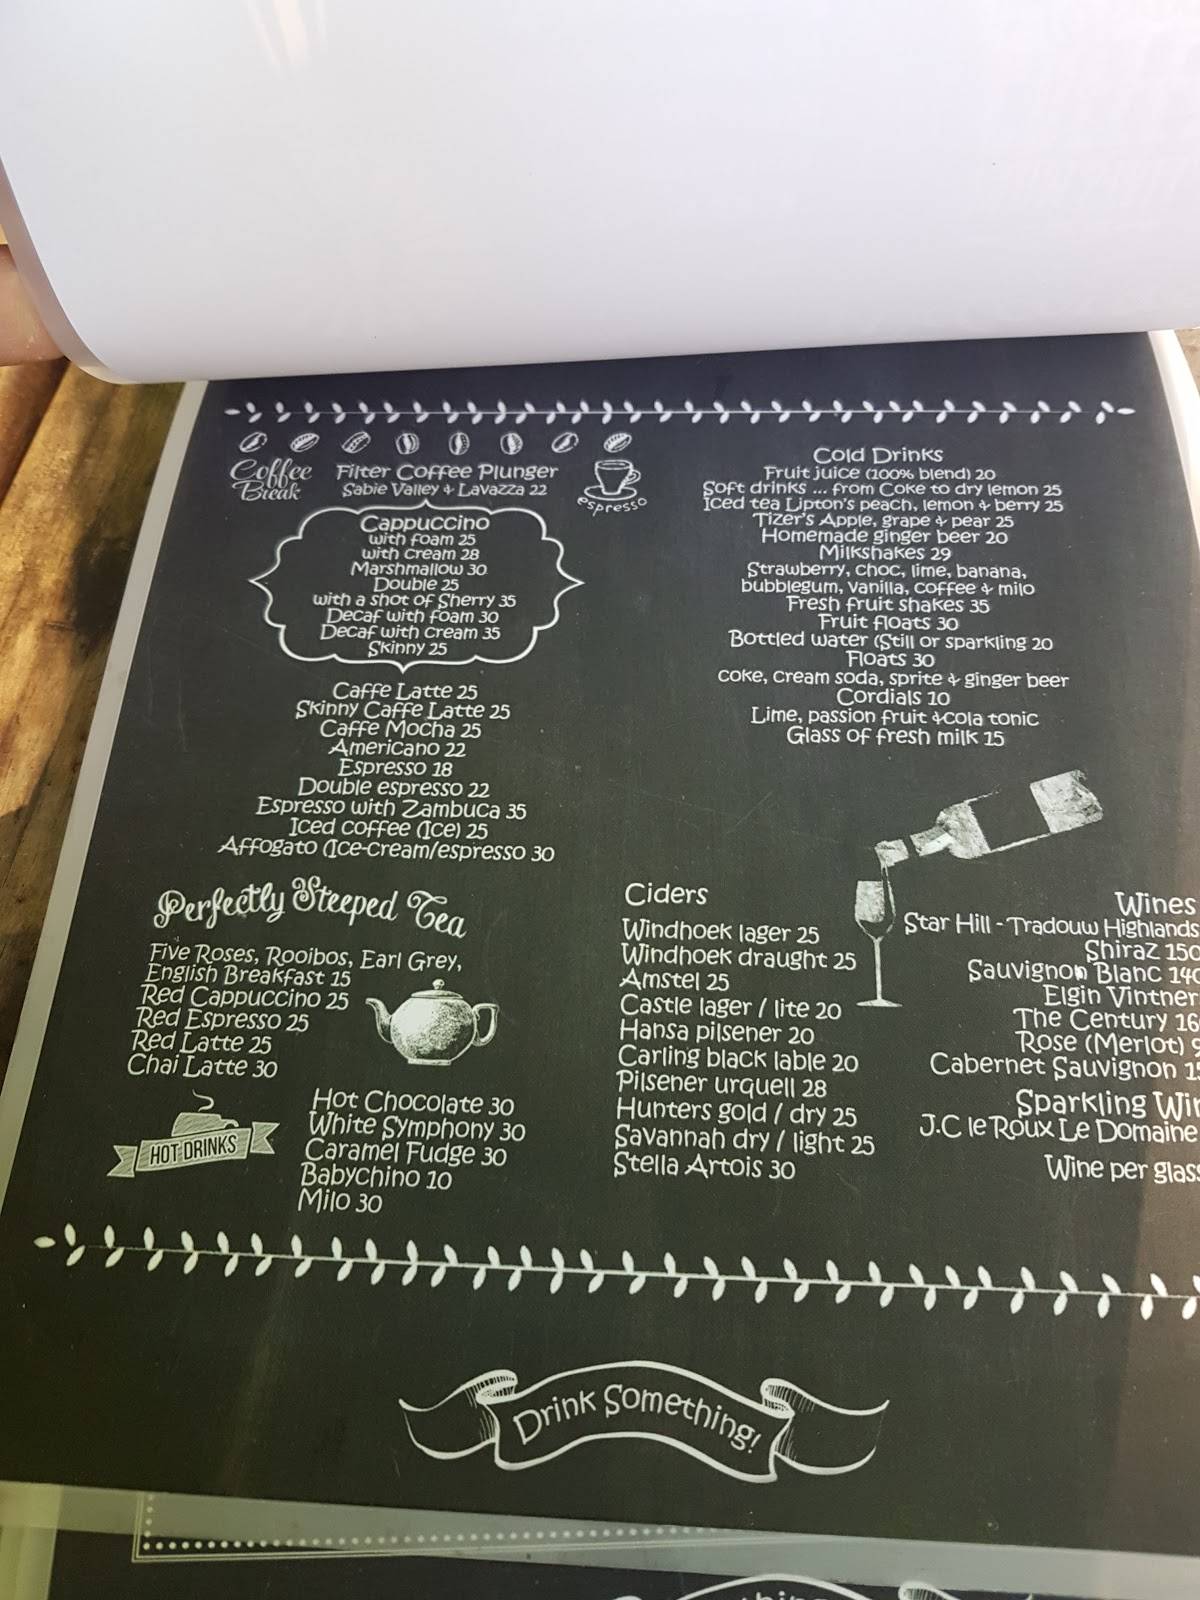 Coffee Break
Filter Coffee Plunger
Sabie Valley & Lavazza 22
espresso
Cappuccino
with foam 25
with cream 28
Marshmallow 30
Double 25
with a shot of Sherry 35
Decaf with foam 30
Decaf with cream 35
Skinny 25
Caffe Latte 25
Skinny Caffe Latte 25
Caffe Mocha 25
Americano 22
Espresso 18
Double espresso 22
Espresso with Zambuca 35
Iced coffee (Ice) 25
Affogato (Ice-cream/espresso 30
Cold Drinks
Fruit juice (100% blend) 20
Soft drinks ... from Coke to dry lemon 25
Iced tea Lipton's peach, lemon & berry 25
Tizer's Apple, grape & pear 25
Homemade ginger beer 20
Milkshakes 29
Strawberry, choc, lime, banana,
bubblegum, vanilla, coffee & milo
Fresh fruit shakes 35
Fruit floats 30
Bottled water (Still or sparkling 20
Floats 30
coke, cream soda, sprite & ginger beer
Cordials 10
Lime, passion fruit &cola tonic
Glass of fresh milk 15
Perfectly Steeped Tea
Five Roses, Rooibos, Earl Grey,
English Breakfast 15
Red Cappuccino 25
Red Espresso 25
Red Latte 25
Chai Latte 30
HOT DRINKS
Hot Chocolate 30
White Symphony 30
Caramel Fudge 30
Babychino 10
Milo 30
Ciders
Windhoek lager 25
Windhoek draught 25
Amstel 25
Castle lager / lite 20
Hansa pilsener 20
Carling black lable 20
Pilsener urquell 28
Hunters gold / dry 25
Savannah dry / light 25
Stella Artois 30
Wines
Star Hill - Tradouw Highlands
Shiraz 150
Sauvignon Blanc 140
Elgin Vintner
The Century 16
Rose (Merlot)
Cabernet Sauvignon
Sparkling
J.C le Roux Le Domaine
Wine per glass
Drink Something!